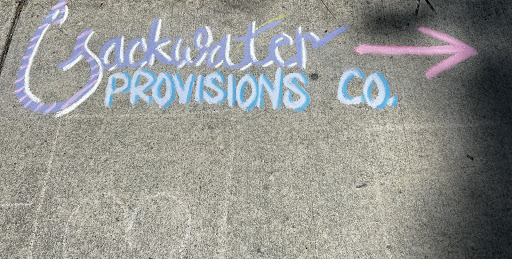 Backwater
PROVISIONS CO.